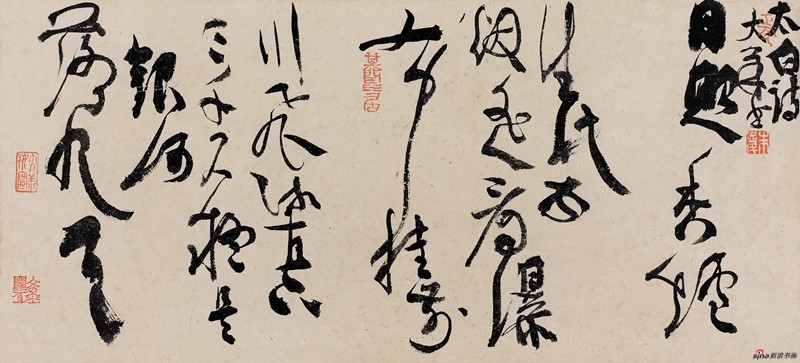 太白詩
日照香爐
生紫
烟遥看瀑
布掛前
川飛流直下
三千尺疑是
銀河
落九天
sina新浪书画